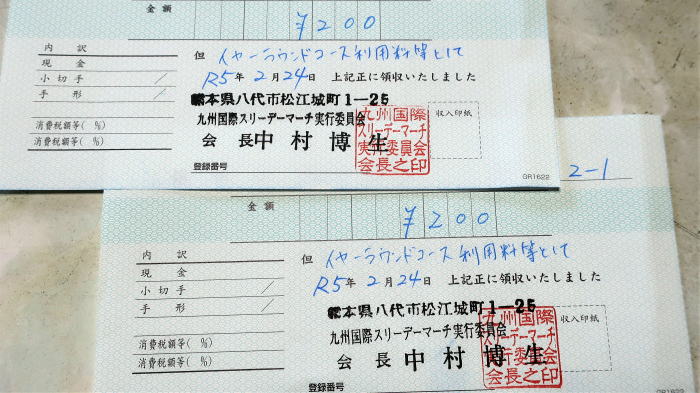 金額 ¥200
内訳
現金
小切手 /
手形 /
消費税額等( %)
消費税額等( %)
但 イヤーラウンドコース利用料等として
R5年2月24日 上記正に領収いたしました
熊本県八代市松江城町1-25
九州国際スリーデーマーチ実行委員会
会長 中村博生
九州国際
スリーデーマーチ
実行委員会
会長之印
収入印紙
登録番号
GR1622
2-1
金額 ¥200
内訳
現金
小切手 /
手形 /
消費税額等( %)
消費税額等( %)
但 イヤーラウンドコース利用料等として
R5年2月24日 上記正に領収いたしました
熊本県八代市松江城町1-25
九州国際スリーデーマーチ実行委員会
会長 中村博生
九州国際
スリーデーマーチ
実行委員会
会長之印
収入印紙
登録番号